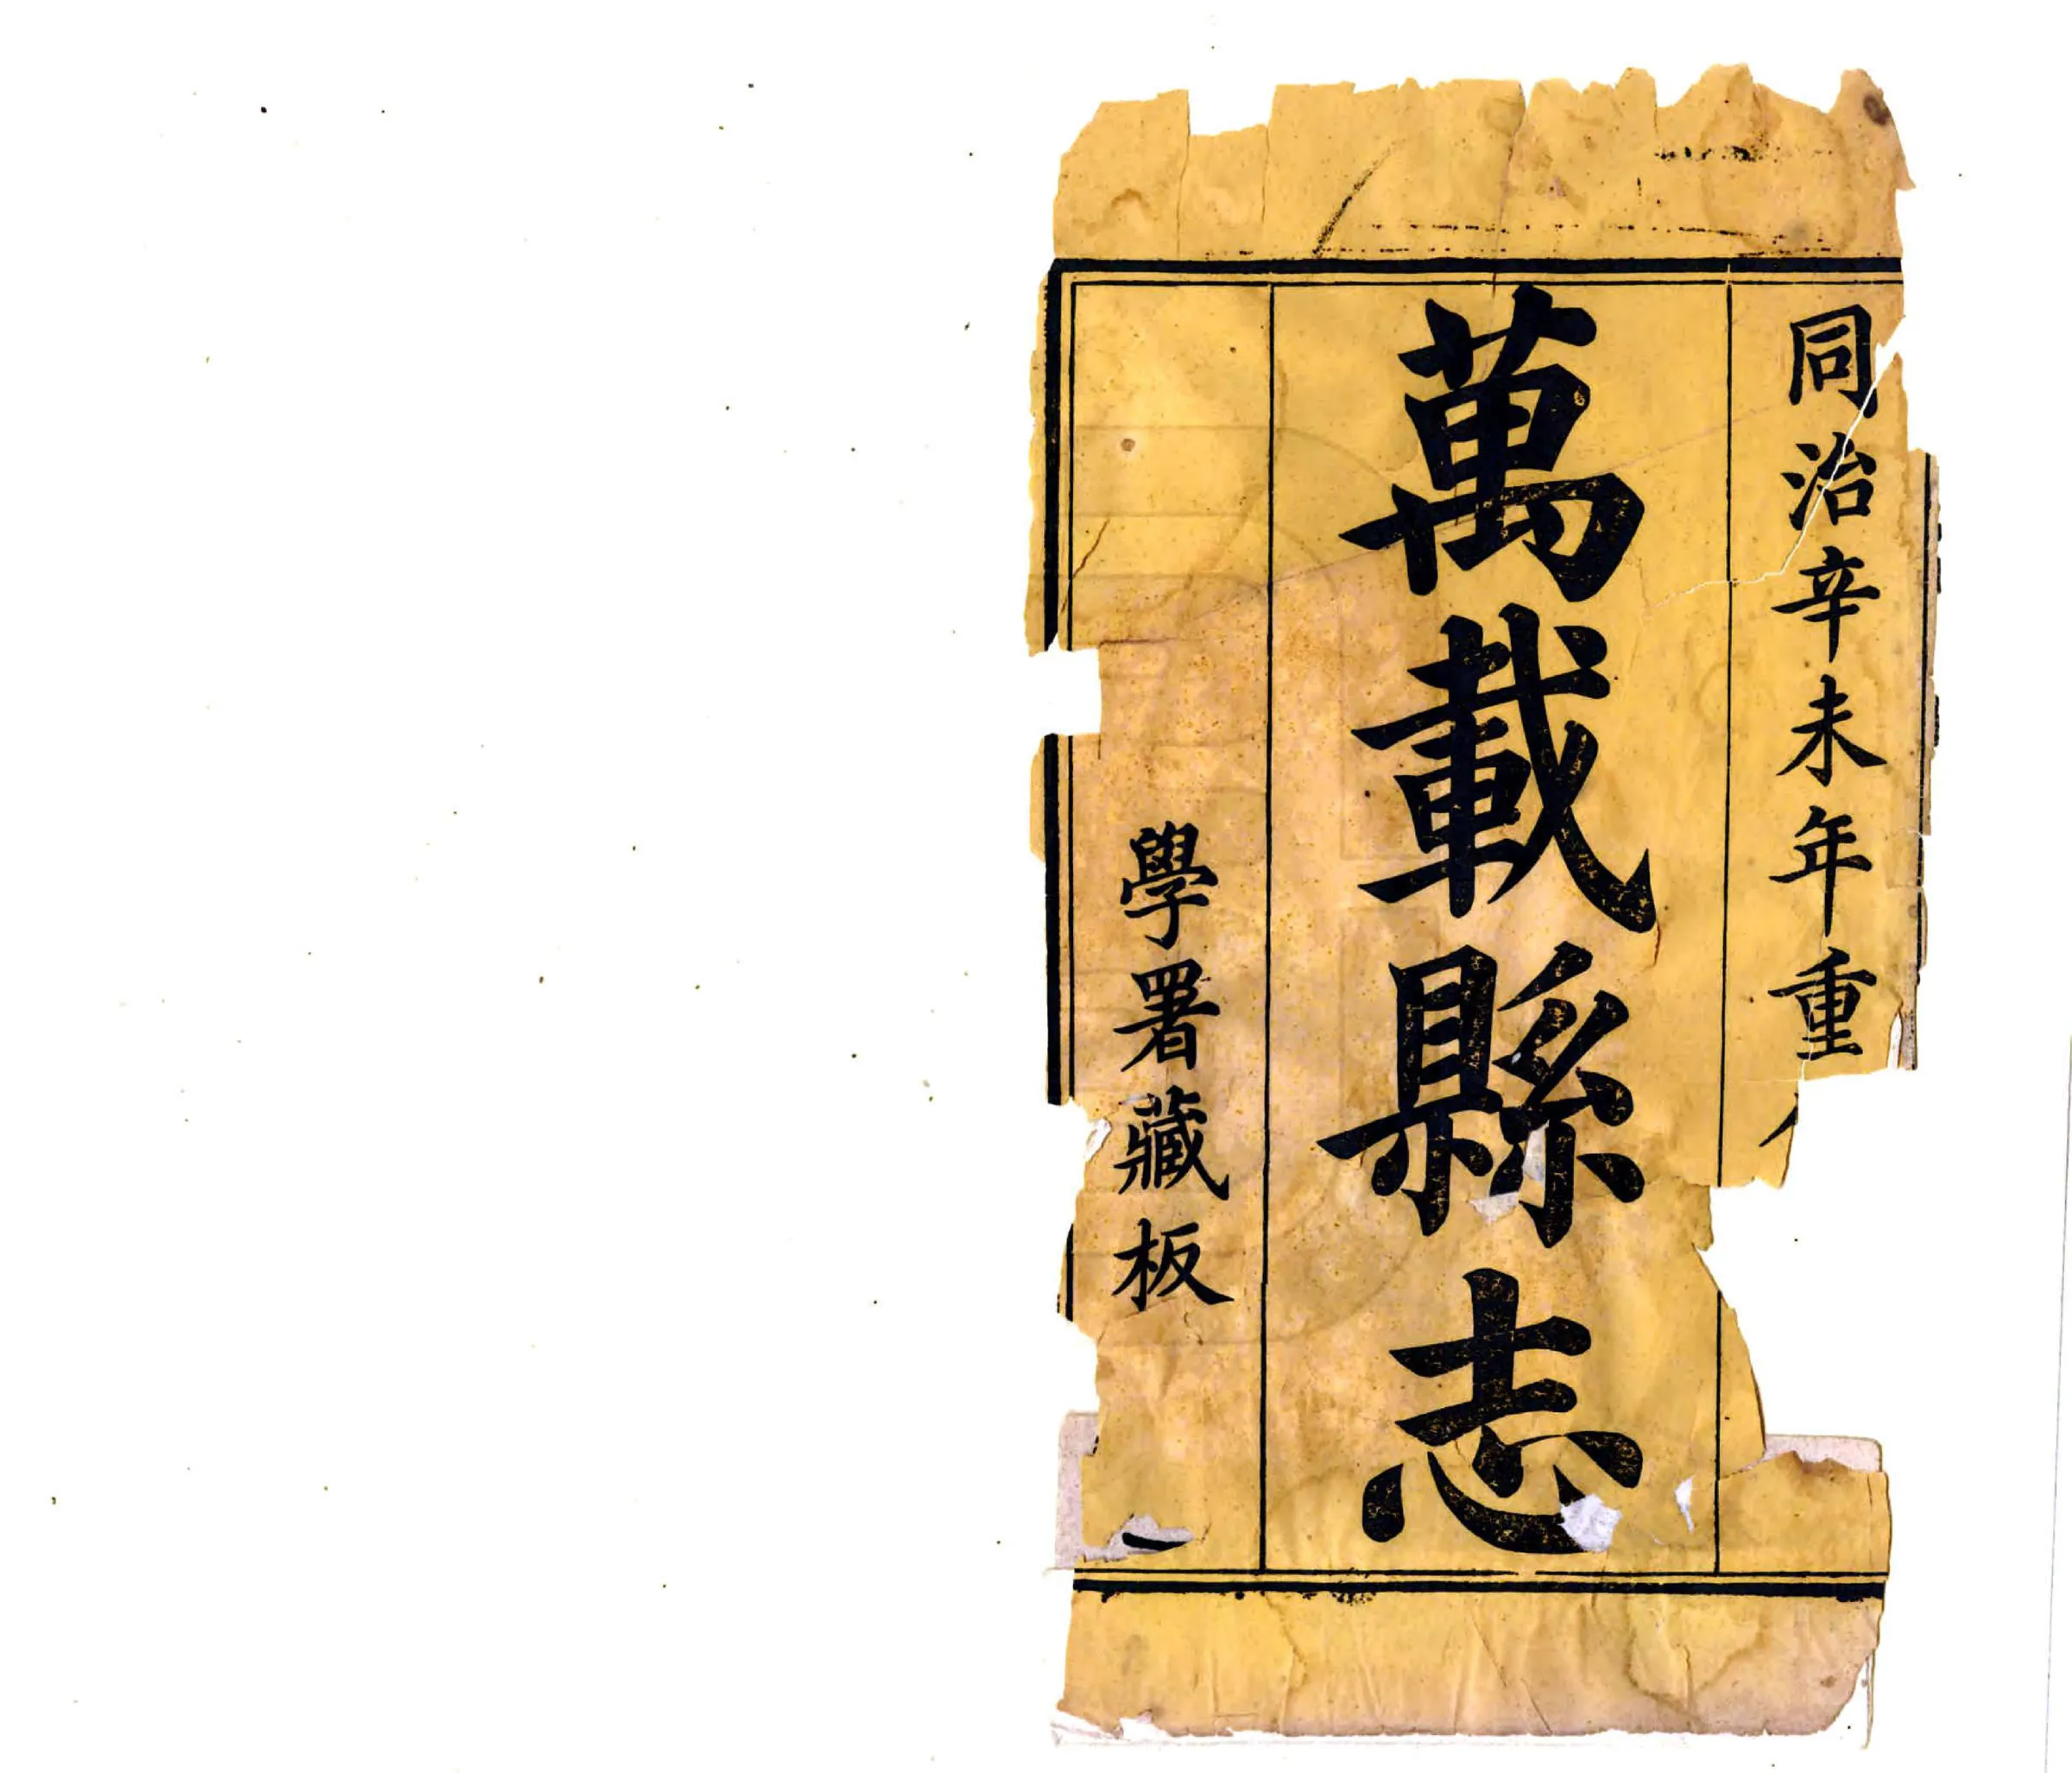 同治辛未年重
萬載縣志
學署藏板